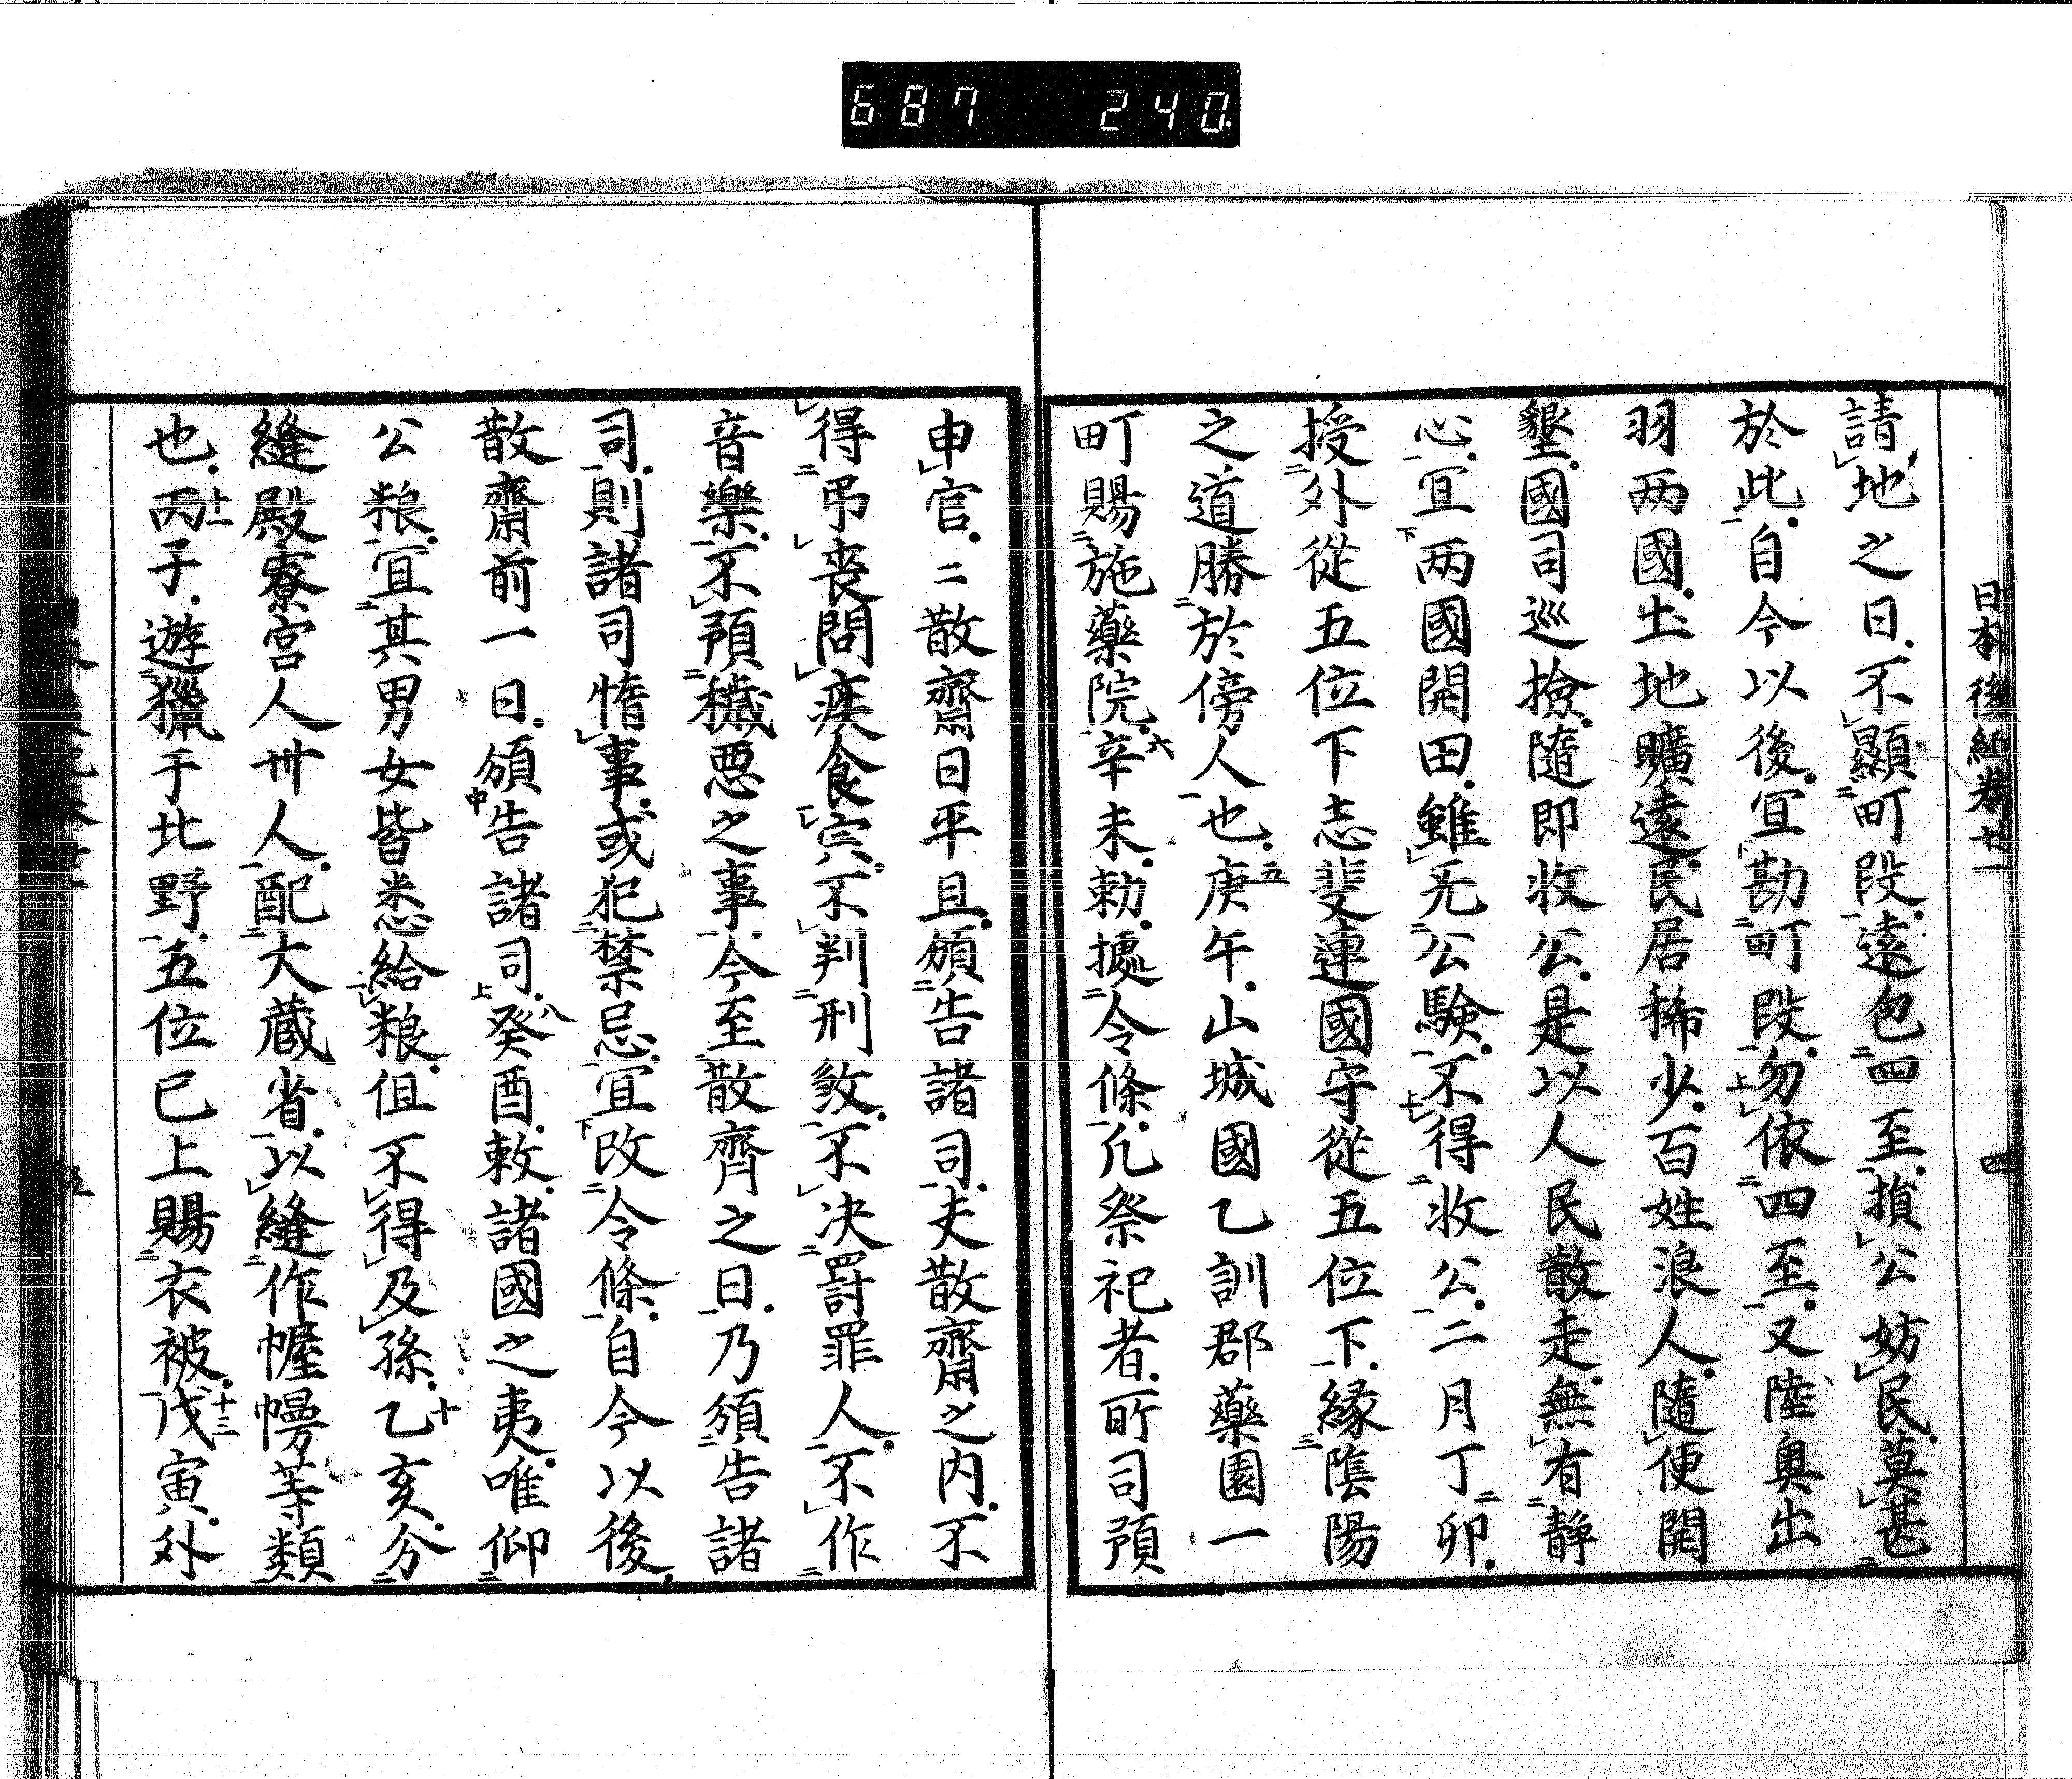 687 240
日本後紀卷廿一 四
請地之日不顯町段遠包四至損公妨民莫甚
於此自今以後冝勘町段勿依四至又陸奥出
羽兩國土地曠遠民居稀少百姓浪人隨便開
墾國司巡撿隨即收公是以人民散走無有靜
心冝兩國開田雖无公驗不得收公二月丁卯
授外從五位下志斐連國守從五位下緣陰陽
之道勝於傍人也庚午山城國乙訓郡藥園一
町賜施藥院辛未勅據令條凡祭祀者所司預
申官二散齋日平旦頒告諸司夫散齋之内不
得弔喪問疾食宍不判刑煞不决罰罪人不作
音樂不預穢悪之事今至散齊之日乃頒告諸
司則諸司惰事或犯禁忌冝改令條自今以後
散齋前一日頒告諸司癸酉敕諸國之夷唯仰
公粮冝其男女皆悉給粮但不得及孫乙亥分
縫殿寮宮人卅人配大蔵省以縫作幄幔等類
也丙子遊獵于北野五位已上賜衣被戊寅外